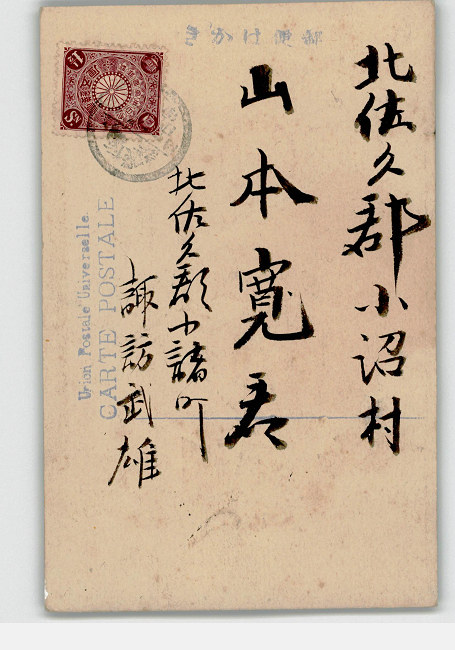 きがか け便郵
北佐久郡小沼村
山本寛君
北佐久郡小諸町
諏訪武雄
Union Postale Universelle
CARTE POSTALE